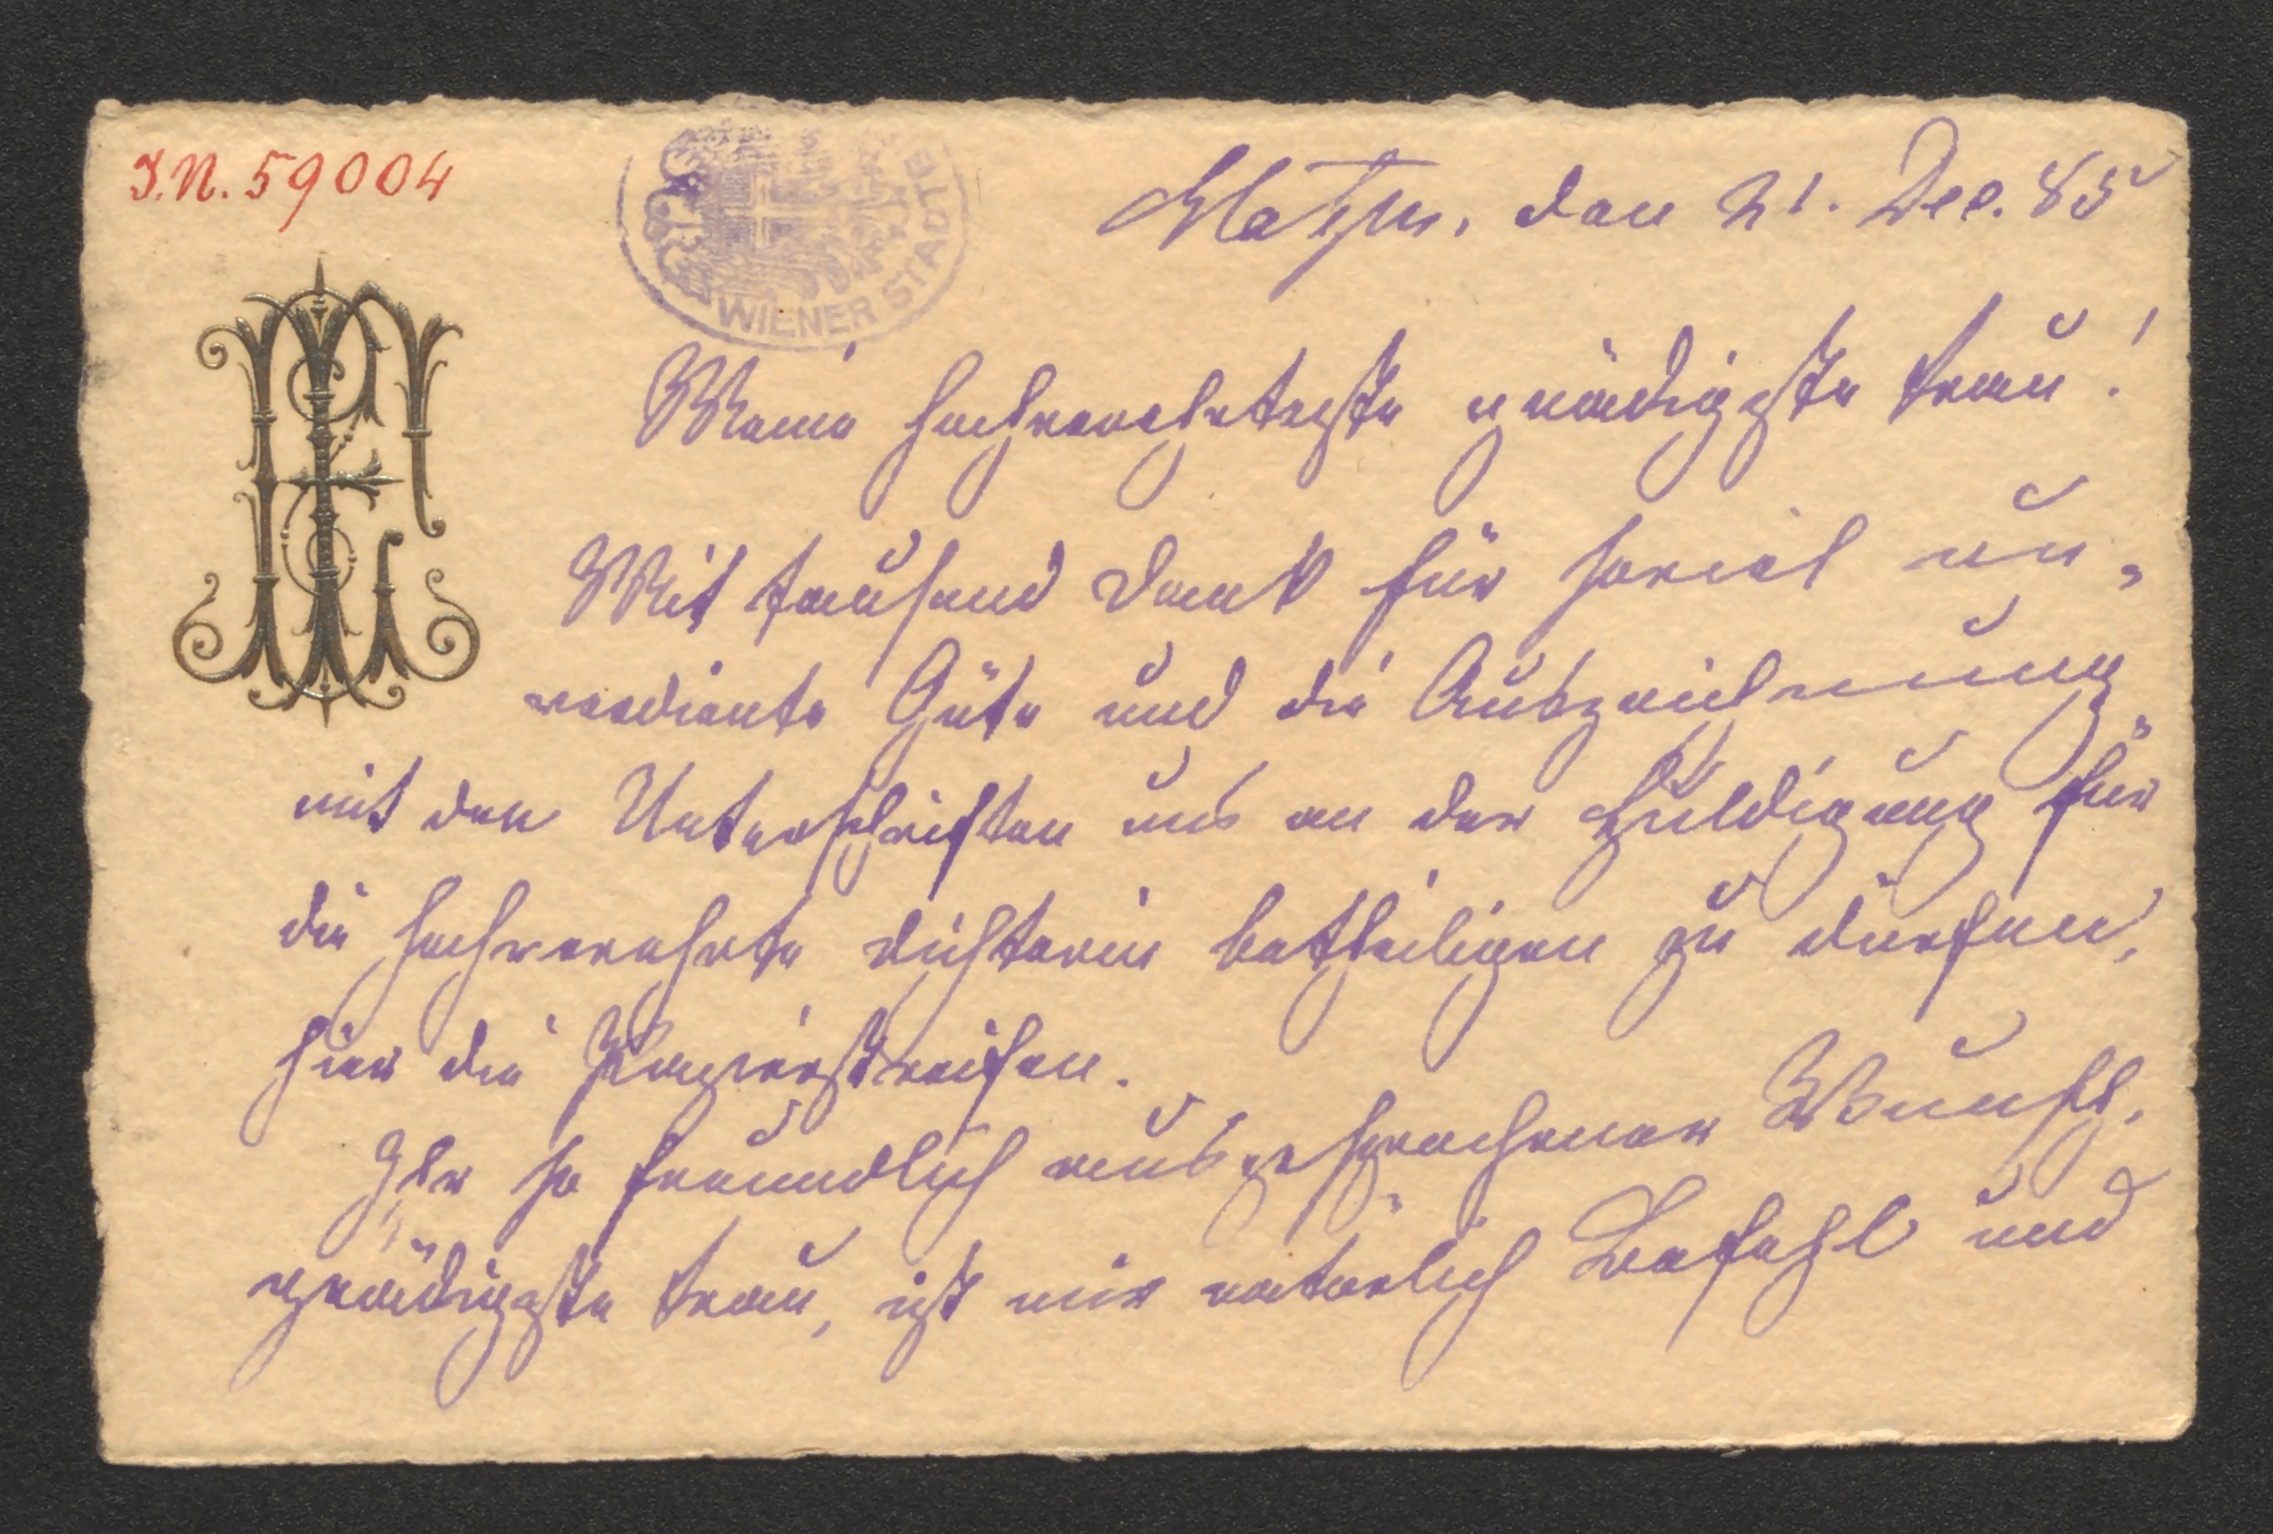 I.N. 59004
WIENER STADTB
Matzen, den 21. Dec. 85
Meine hochverehrteste gnädigste Frau!
Mit tausend Dank für soviel un-
verdiente Güte und die Auszeichnung,
mit den Unterschriften uns an der Huldigung für
die hochverehrte Dichterin betheiligen zu dürfen,
hier die Papierstreifen.
Ihr so freundlich ausgesprochener Wunsch,
gnädigste Frau, ist mir natürlich Befehl und